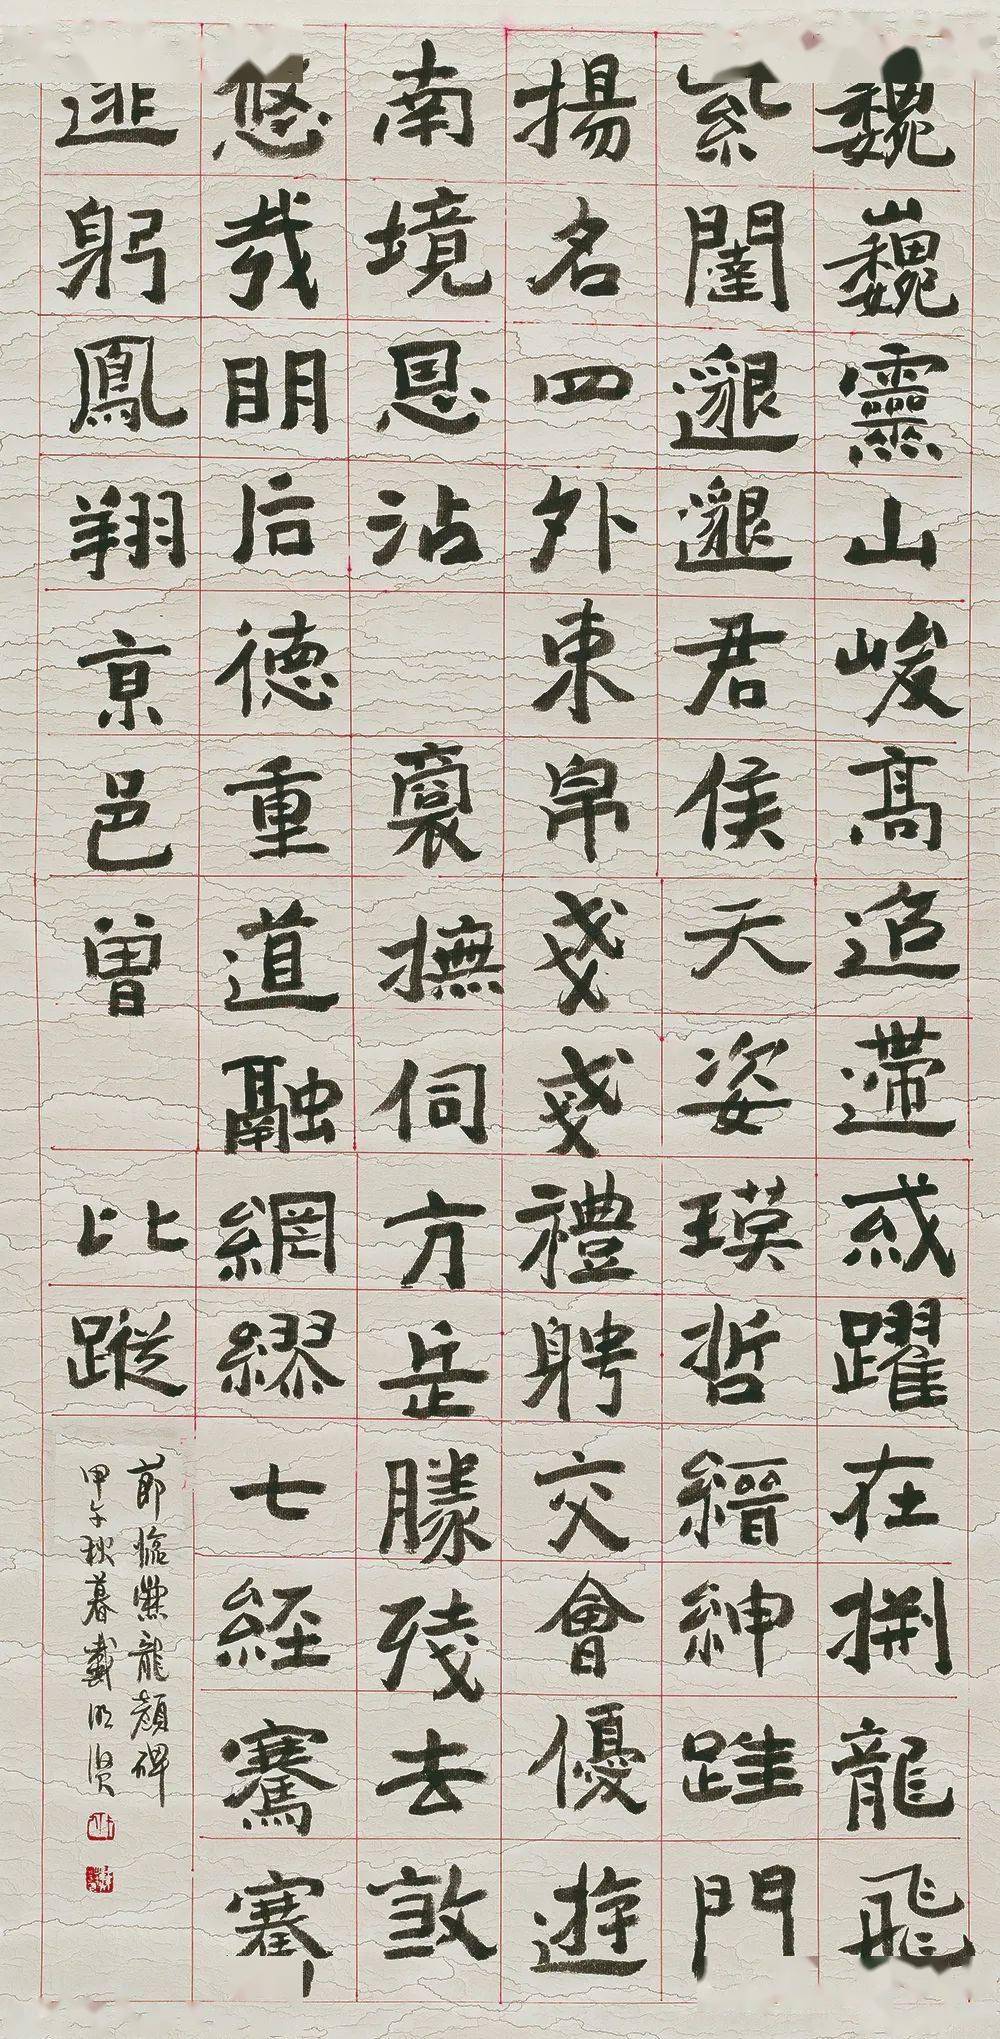 巍巍靈山峻高迢遰或躍在淵龍飛
紫闥邈邈君侯天姿瑛哲縉紳踵門
揚名四外束帛戔戔禮聘交會優遊
南境恩沾裔撫伺方岳勝殘去敦
悠哉明后德重道融綢繆七經騫騫
匪躬鳳翔京邑曾比蹤
節臨爨龍顏碑
甲午秋暮戴明賢